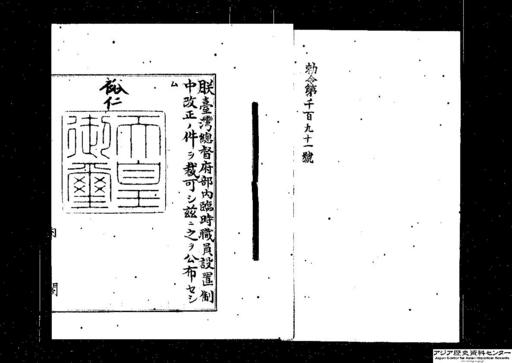 勅令第千百九十一號
朕臺灣總督府部內臨時職員設置制
中改正ノ件ヲ裁可シ茲ニ之ヲ公布セシ
ム
裕仁
天皇
御璽
內閣
アジア歴史資料センター
Japan Center for Asian Historical Records